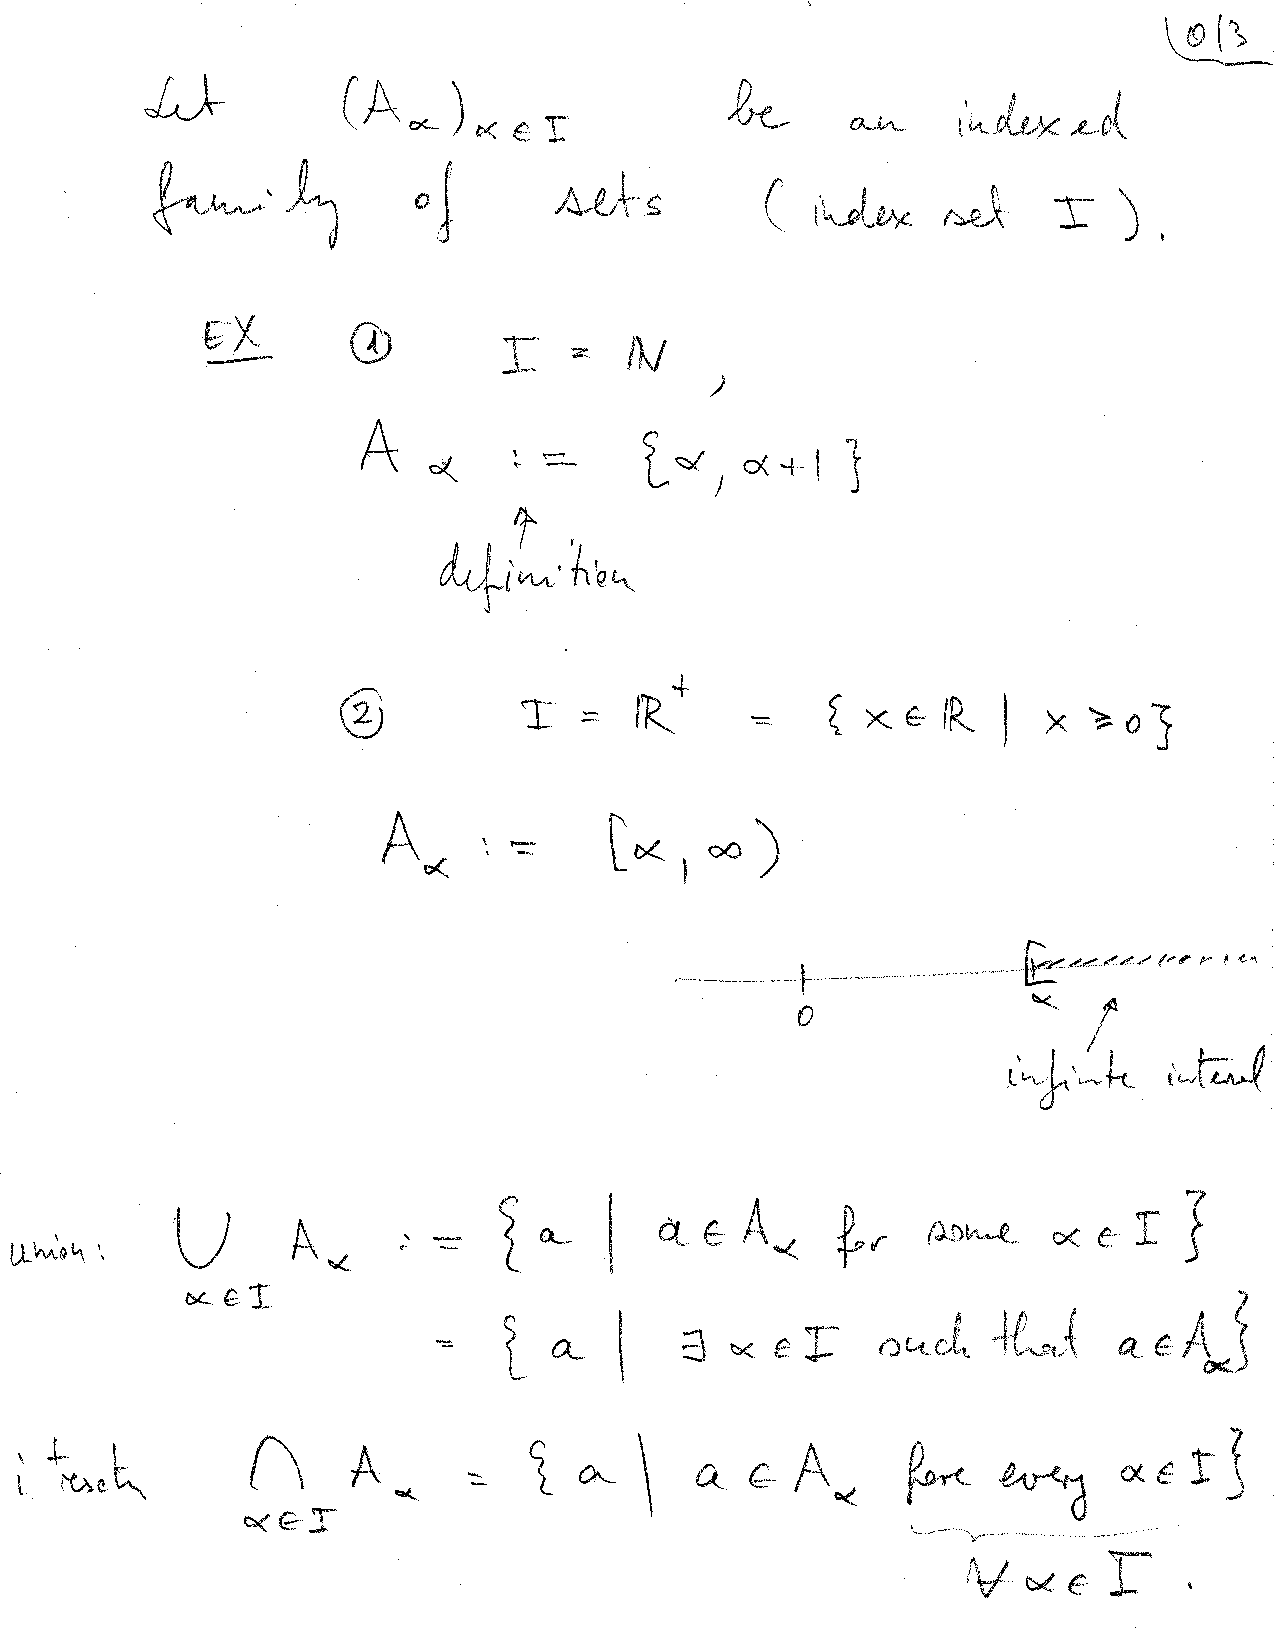 0/3
Let (A_α)_{α∈I} be an indexed
family of sets (index set I).
EX ① I = ℕ,
A_α := {α, α+1}
↑
definition
② I = ℝ⁺ = {x∈ℝ | x⩾0}
A_α := [α, ∞)
0 α
infinite interval
union: ⋃_{α∈I} A_α := {a | a∈A_α for some α∈I}
= {a | ∃ α∈I such that a∈A_α}
⋂_{α∈I} A_α = {a | a∈A_α for every α∈I}
∀ α∈I.